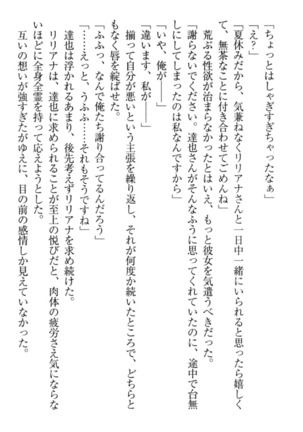 「ちょっとはしゃぎすぎちゃったなぁ」
「え？」
「夏休みだから、気兼ねなくリリアナさんと一日中一緒にいられると思ったら嬉しく
て、無茶なことに付き合わせてごめんね」
荒ぶる性欲が治まらなかったとはいえ、もっと彼女を気遣うべきだった。
「謝らないでください。達也さんがそんなふうに思ってくれていたのに、途中で台無
しにしてしまったのは私なんですから」
「いや、俺が――」
「違います、私が――」
揃って自分が悪いという主張を繰り返し、それが何度か続いたところで、どちらと
もなく唇を綻ばせた。
「ふふっ、なんで俺たち謝り合ってるんだろう」
「……えっと、うふふ……それもそうですね」
達也は浮かれるあまり、後先考えずリリアナを求め続けた。
リリアナは、達也に求められることが至上の悦びだと、肉体の疲労さえ気にならな
いほどに全身全霊を持って応えようとした。
互いの想いが強すぎたがゆえに、目の前の感情しか見えていなかった。